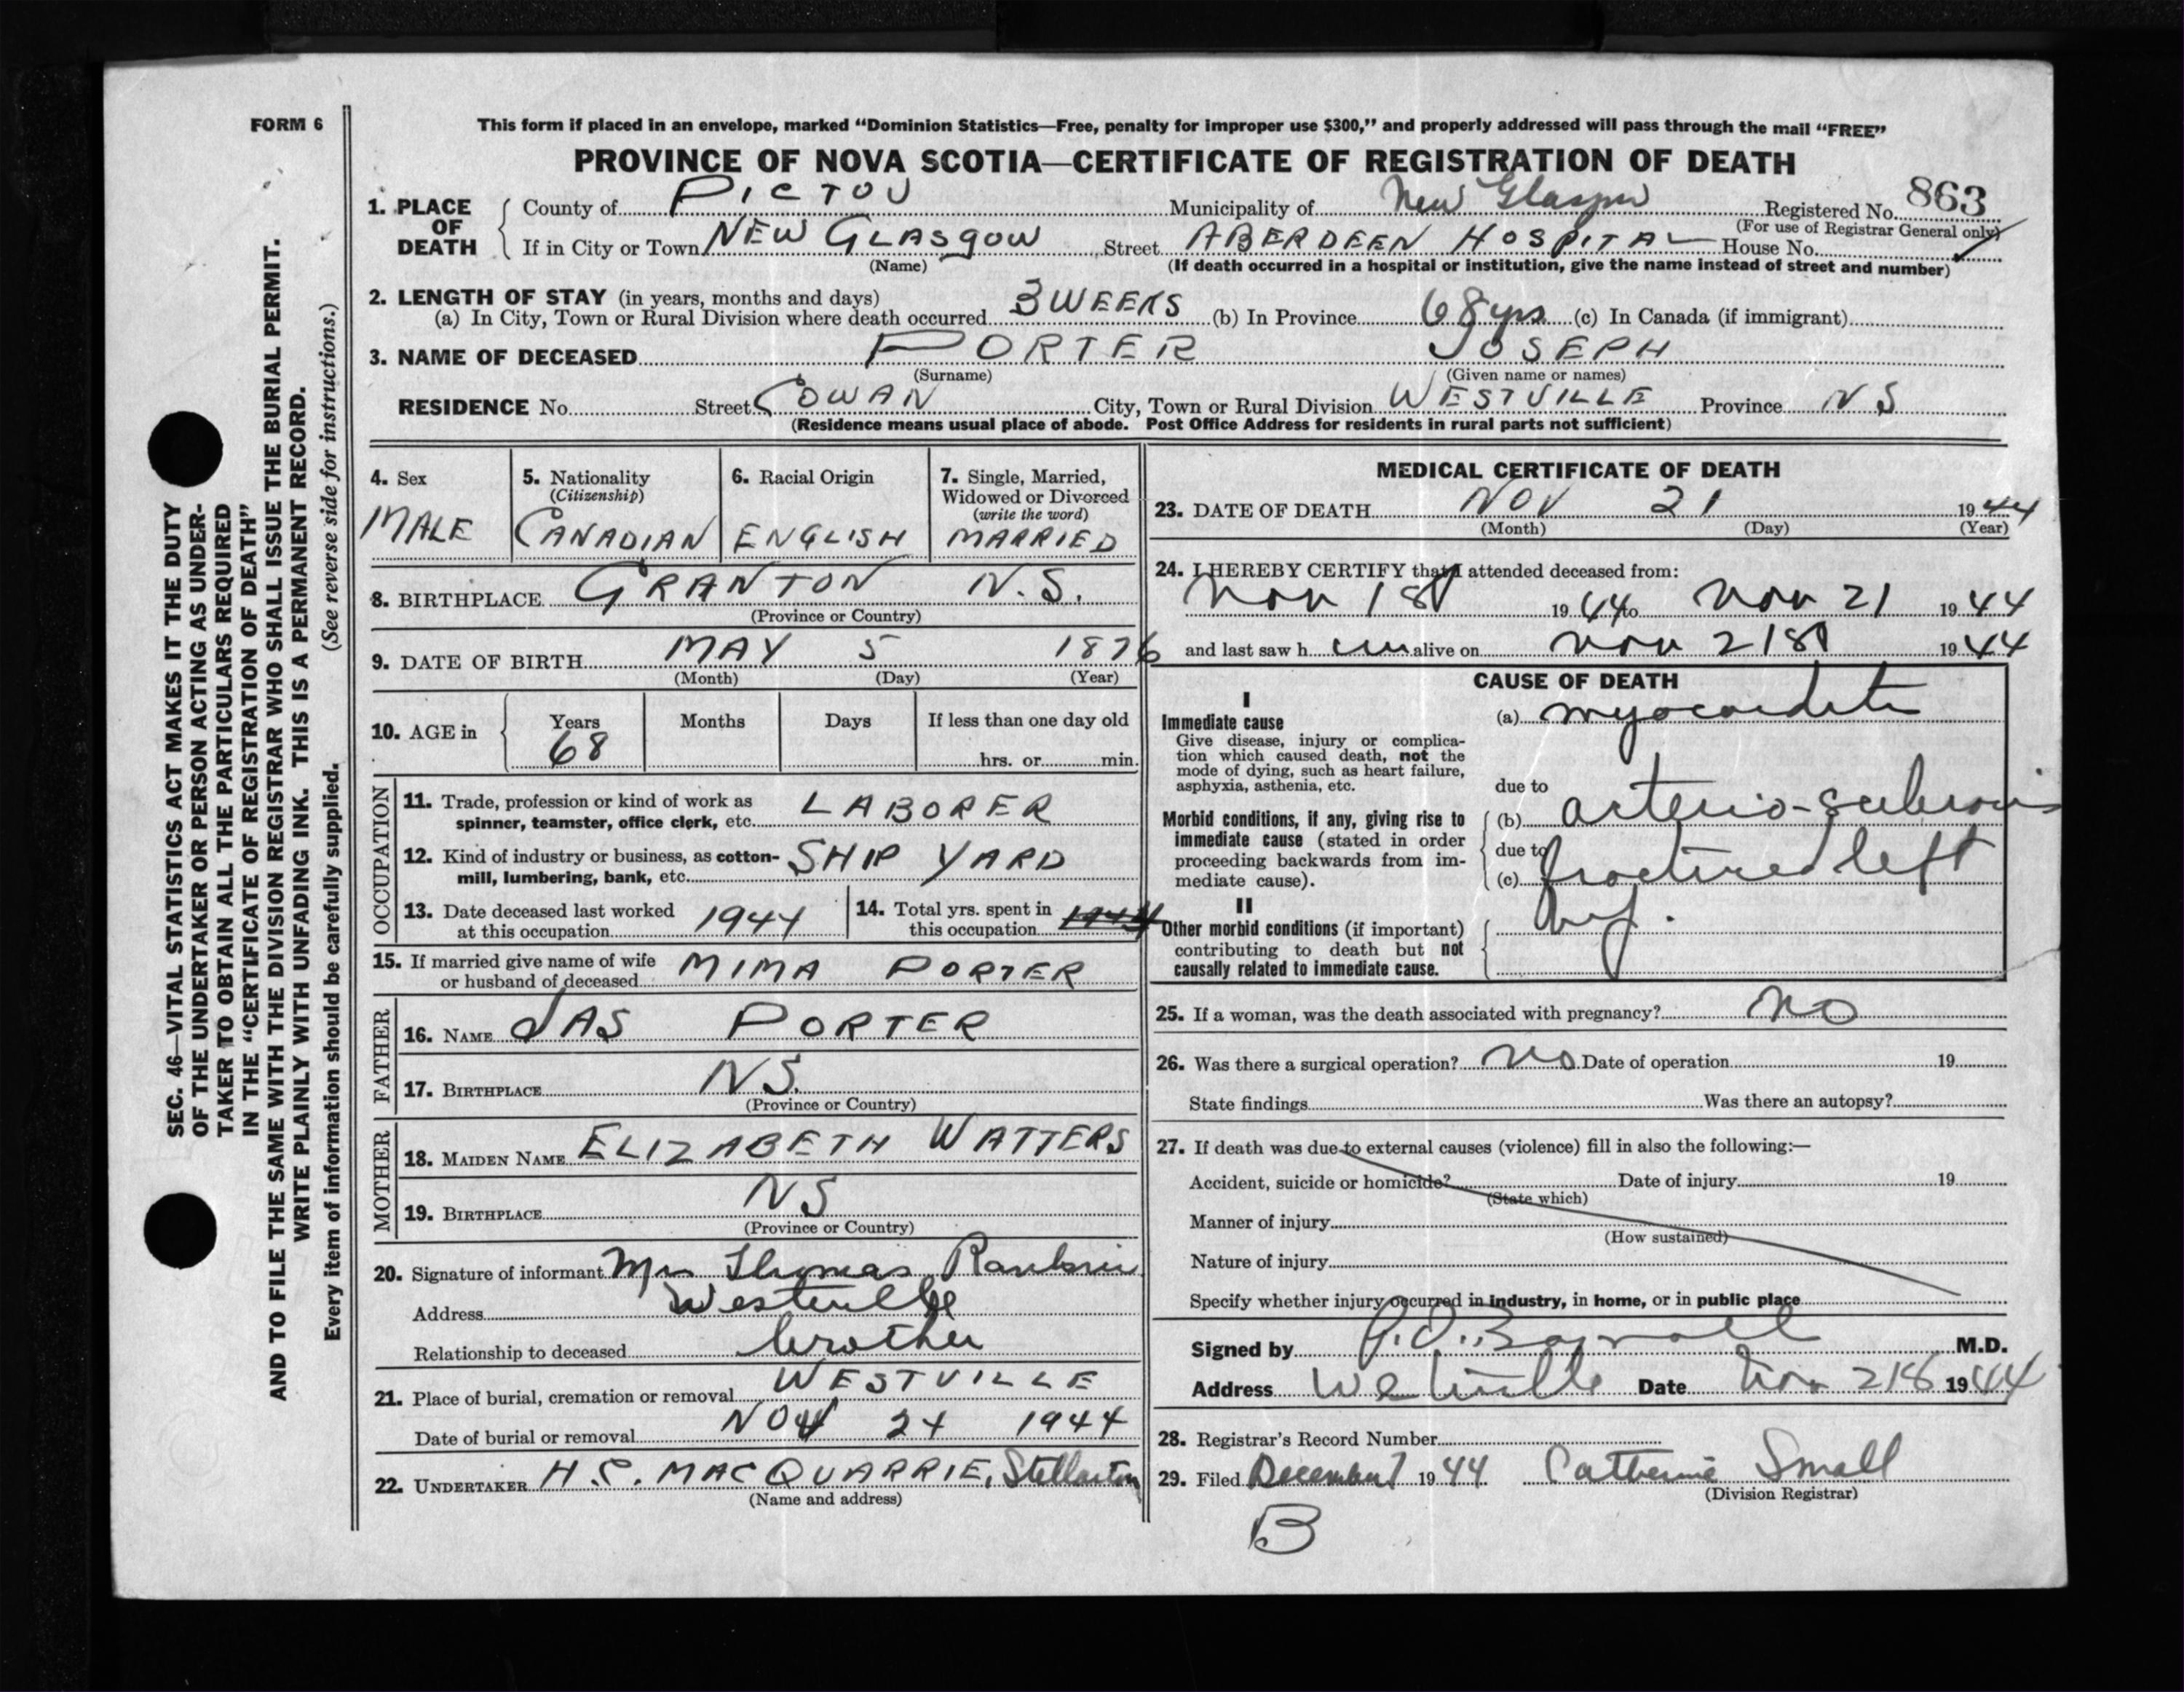 FORM 6
This form if placed in an envelope, marked “Dominion Statistics—Free, penalty for improper use $300,” and properly addressed will pass through the mail “FREE”
PROVINCE OF NOVA SCOTIA—CERTIFICATE OF REGISTRATION OF DEATH
1. PLACE OF DEATH County of PICTOU Municipality of New Glasgow Registered No. 863
(For use of Registrar General only)
If in City or Town NEW GLASGOW Street ABERDEEN HOSPITAL House No.
(Name) (If death occurred in a hospital or institution, give the name instead of street and number)
2. LENGTH OF STAY (in years, months and days)
(a) In City, Town or Rural Division where death occurred 3 WEEKS (b) In Province 68 yrs (c) In Canada (if immigrant)
3. NAME OF DECEASED PORTER JOSEPH
(Surname) (Given name or names)
RESIDENCE No. Street COWAN City, Town or Rural Division WESTVILLE Province N S
(Residence means usual place of abode. Post Office Address for residents in rural parts not sufficient)
4. Sex
MALE
5. Nationality
(Citizenship)
CANADIAN
6. Racial Origin
ENGLISH
7. Single, Married,
Widowed or Divorced
(write the word)
MARRIED
8. BIRTHPLACE GRANTON N.S.
(Province or Country)
9. DATE OF BIRTH MAY 5 1876
(Month) (Day) (Year)
10. AGE in Years Months Days If less than one day old
68 hrs. or min.
OCCUPATION
11. Trade, profession or kind of work as
spinner, teamster, office clerk, etc. LABORER
12. Kind of industry or business, as cotton-
mill, lumbering, bank, etc. SHIP YARD
13. Date deceased last worked
at this occupation 1944
14. Total yrs. spent in
this occupation 1944
15. If married give name of wife
or husband of deceased MIMA PORTER
FATHER
16. NAME JAS PORTER
17. BIRTHPLACE NS.
(Province or Country)
MOTHER
18. MAIDEN NAME ELIZABETH WATTERS
19. BIRTHPLACE NS
(Province or Country)
20. Signature of informant Mrs Thomas
Address Westville
Relationship to deceased brother
21. Place of burial, cremation or removal WESTVILLE
Date of burial or removal NOV 24 1944
22. UNDERTAKER H.C. MACQUARRIE, Stellarton
(Name and address)
MEDICAL CERTIFICATE OF DEATH
23. DATE OF DEATH NOV 21 1944
(Month) (Day) (Year)
24. I HEREBY CERTIFY that I attended deceased from:
Nov 1st 1944 to Nov 21 1944
and last saw him alive on Nov 21st 1944
CAUSE OF DEATH
I
Immediate cause
Give disease, injury or complica-
tion which caused death, not the
mode of dying, such as heart failure,
asphyxia, asthenia, etc.
(a) myocarditis
due to
Morbid conditions, if any, giving rise to
immediate cause (stated in order
proceeding backwards from im-
mediate cause).
(b) arterio-sclerosis
due to
(c) fractured left
hip.
II
Other morbid conditions (if important)
contributing to death but not
causally related to immediate cause.
25. If a woman, was the death associated with pregnancy? no
26. Was there a surgical operation? no Date of operation 19
State findings Was there an autopsy?
27. If death was due to external causes (violence) fill in also the following:—
Accident, suicide or homicide? Date of injury 19
(State which)
Manner of injury
(How sustained)
Nature of injury
Specify whether injury occurred in industry, in home, or in public place
Signed by M.D.
Address Westville Date Nov 21st 1944
28. Registrar's Record Number
29. Filed December 1 1944 Catherine Small
(Division Registrar)
B
SEC. 46—VITAL STATISTICS ACT MAKES IT THE DUTY
OF THE UNDERTAKER OR PERSON ACTING AS UNDER-
TAKER TO OBTAIN ALL THE PARTICULARS REQUIRED
IN THE “CERTIFICATE OF REGISTRATION OF DEATH”
AND TO FILE THE SAME WITH THE DIVISION REGISTRAR WHO SHALL ISSUE THE BURIAL PERMIT.
WRITE PLAINLY WITH UNFADING INK. THIS IS A PERMANENT RECORD.
Every item of information should be carefully supplied. (See reverse side for instructions.)